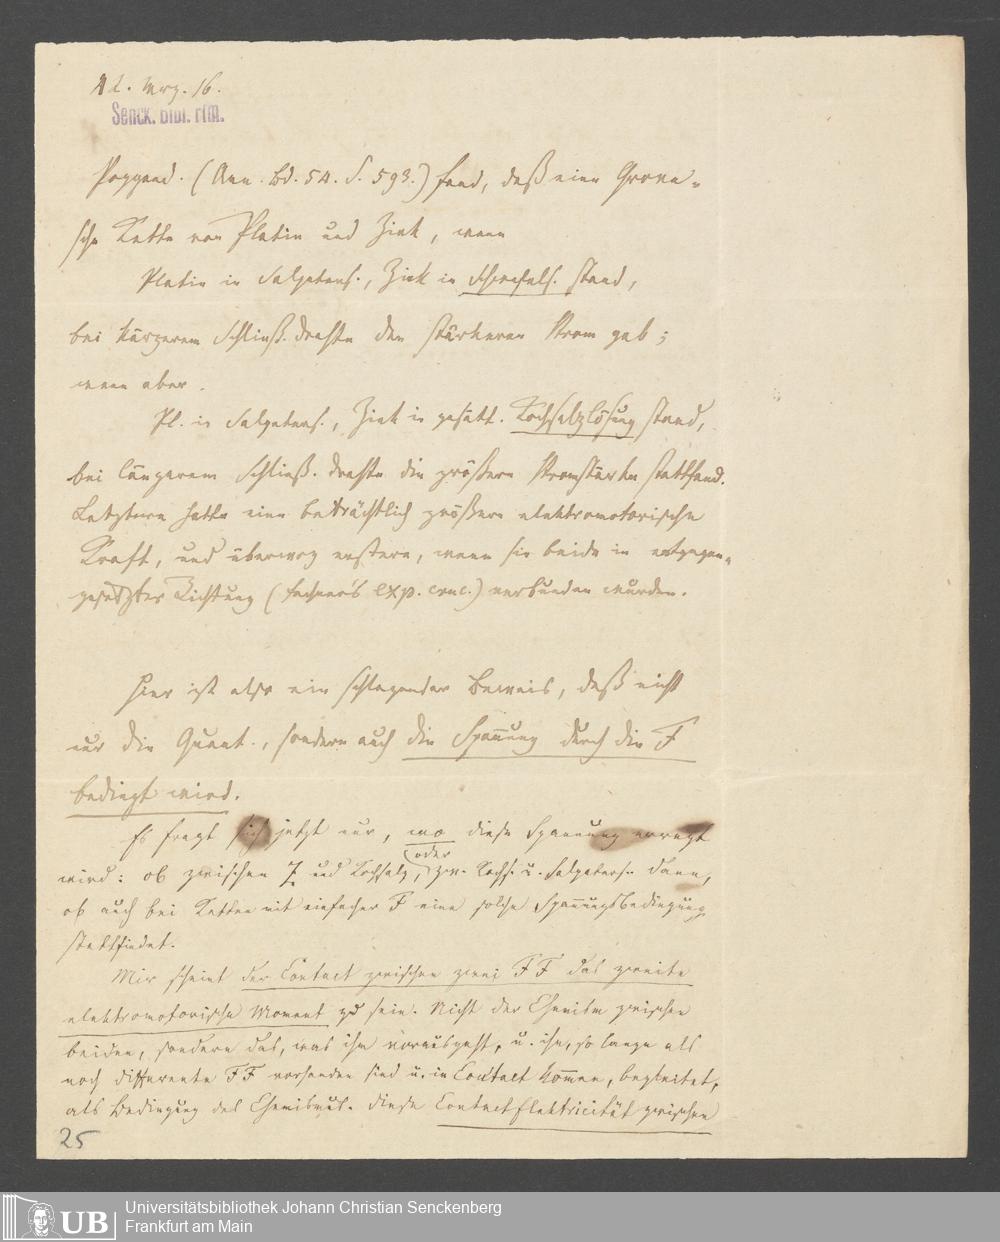 42. Mrz. 16.
Senck. Bibl. Ffm.
Poggend. (Ann. Bd. 54. S. 593.) fand, daß eine Grove-
sche Kette von Platin und Zink, wenn
Platin in Salpeters., Zink in Schwefels. stand,
bei kürzerem Schließ. drahte den stärkeren Strom gab;
wenn aber
Pl. in Salpeters., Zink in gesätt. Kochsalzlösung stand,
bei längerem Schließ. drahte die größere Stromstärke stattfand.
Letztere hatte eine beträchtlich größere elektromotorische
Kraft, und überwog erstere, wenn sie beide in entgegen-
gesetzter Richtung (Fechner's exp. cruc.) verbunden wurden.
Hier ist also ein schlagender Beweis, daß nicht
nur die Quant., sondern auch die Spannung durch die F
bedingt wird.
Es fragt sich jetzt nur, wo diese Spannung erregt
wird: ob zwischen Z und Kochsalz, oder zw. Kochs. u. Salpeters. dann,
ob auch bei Ketten mit einfacher F eine solche Spannungsbedingung
stattfindet.
Mir scheint der Contact zwischen zwei FF das zweite
elektromotorische Moment zu sein. Nicht der Chemism zwischen
beiden, sondern das, was ihm vorausgeht, u. ihn, so lange als
noch differente FF vorhanden sind u. in Contact kommen, begleitet,
als Bedingung des Chemismus. diese Contactelektricität zwischen
25
UB
Universitätsbibliothek Johann Christian Senckenberg
Frankfurt am Main